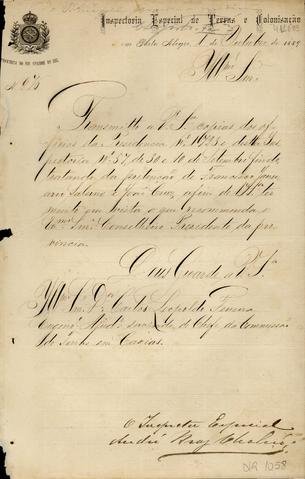 Inspectoria Especial de Terras e Colonisação
PROVINCIA DO RIO GRANDE DO SUL
em Porto Alegre, 1 de Outubro de 1889
Nº
Illmo Snr.
Transmitto a V. Sª copias dos of-
ficios da Presidencia Nº 1925 e desta Ins-
pectoria Nº 57 de 30 e 10 de Setembro findo
tratando da pretenção de Francisco
Salerno e João Cruz, afim de V. Sª ter
em vista o que recommenda o
Exmo Snr. Conselheiro Presidente da pro-
vincia.
Deus Guarde a V. Sª
Illmo Snr. Dr. Carlos Leopoldo
Ajudante servindo de Chefe da Commissão
de Terras em Caxias.
O Inspector Especial
DR 1058